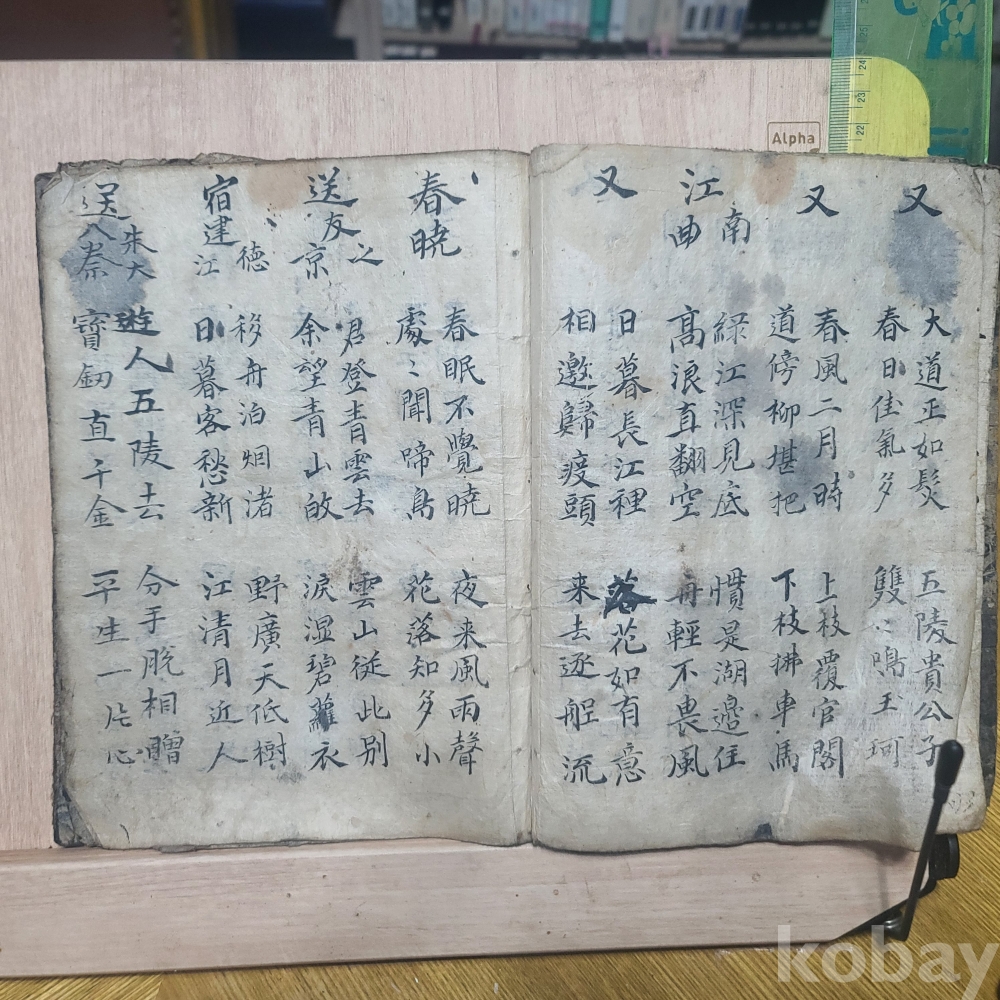 又
大道正如髮 五陵貴公子
春日佳氣多 雙〻鳴玉珂
又
春風二月時 上枝覆官閣
道傍柳堪把 下枝拂車馬
江南曲
綠江深見底 慣是湖邉住
髙浪直翻空 舟輕不畏風
又
日暮長江裡 落花如有意
相邀歸渡頭 来去逐舡流
春暁
春眠不覺暁 夜来風雨聲
處〻聞啼鳥 花落知多小
送友之京
君登青雲去 雲山従此别
余望青山敀 淚湿碧蘿衣
宿建德江
移舟泊烟渚 野廣天低樹
日暮客愁新 江清月近人
送朱大入秦
遊人五陵去 分手脱相贈
寶釼直千金 平生一片心
Alpha
24
23
22
kobay